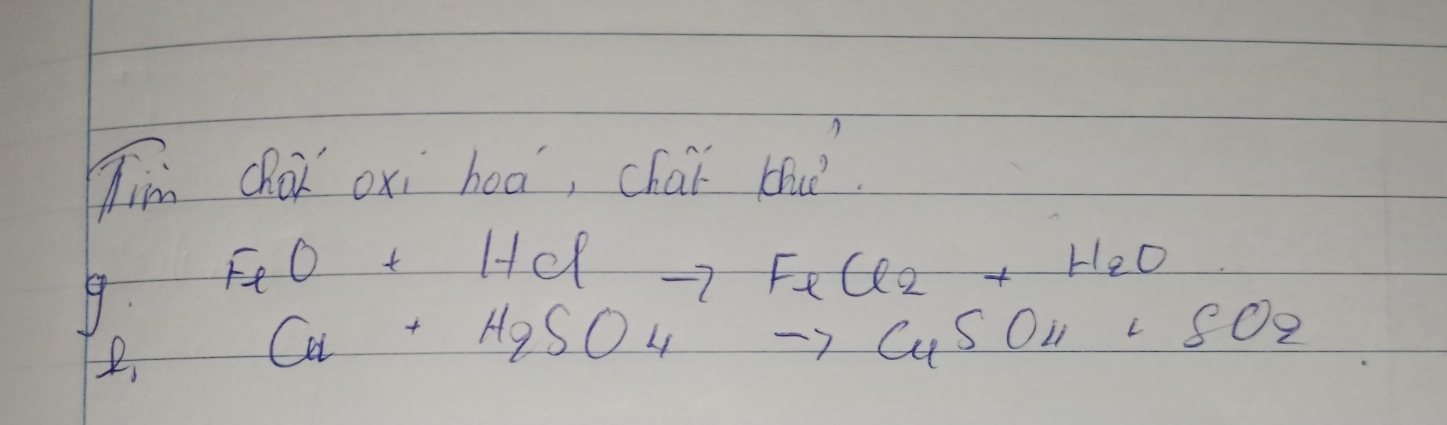 Tìm chất oxi hoá, chất khử.
g. FeO + HCl → FeCl2 + H2O.
l, Cu + H2SO4 → CuSO4 + SO2.